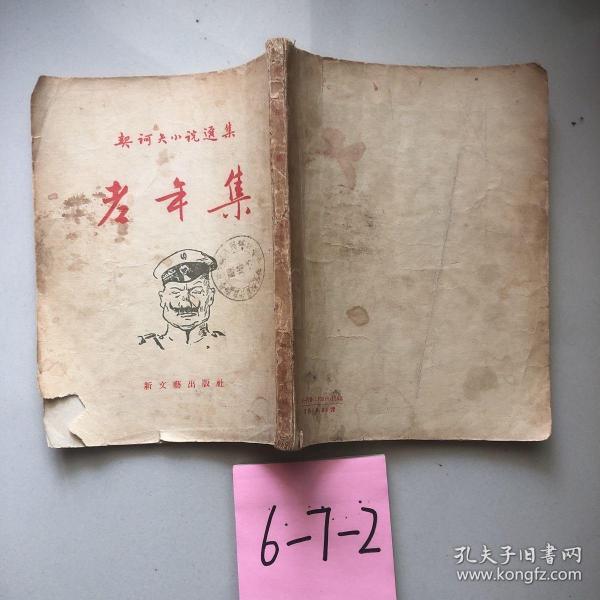 契诃夫小说选集
老年集
新文艺出版社
6-7-2
孔夫子旧书网
www.kongfz.com